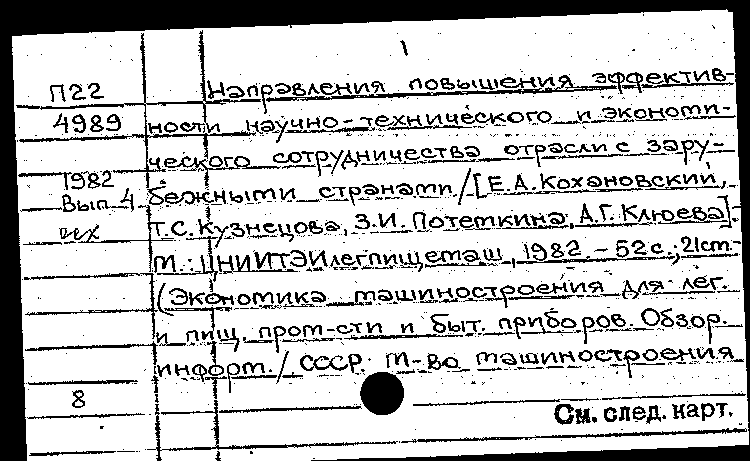 1
П22 Направления повышения эффектив-
4989 ности научно-технического и экономи-
ческого сотрудничества отрасли с зару-
1982 бежными странами / [Е.А. Кохановский,
Вып. 4
Т.С. Кузнецова, З.И. Потемкина, А.Г. Клюева].
М.: ЦНИИТЭИлегпищемаш, 1982. - 52 с.; 21 см. -
(Экономика машиностроения для лег.
и пищ. пром-сти и быт. приборов. Обзор.
информ. / СССР. М-во машиностроения
8
См. след. карт.